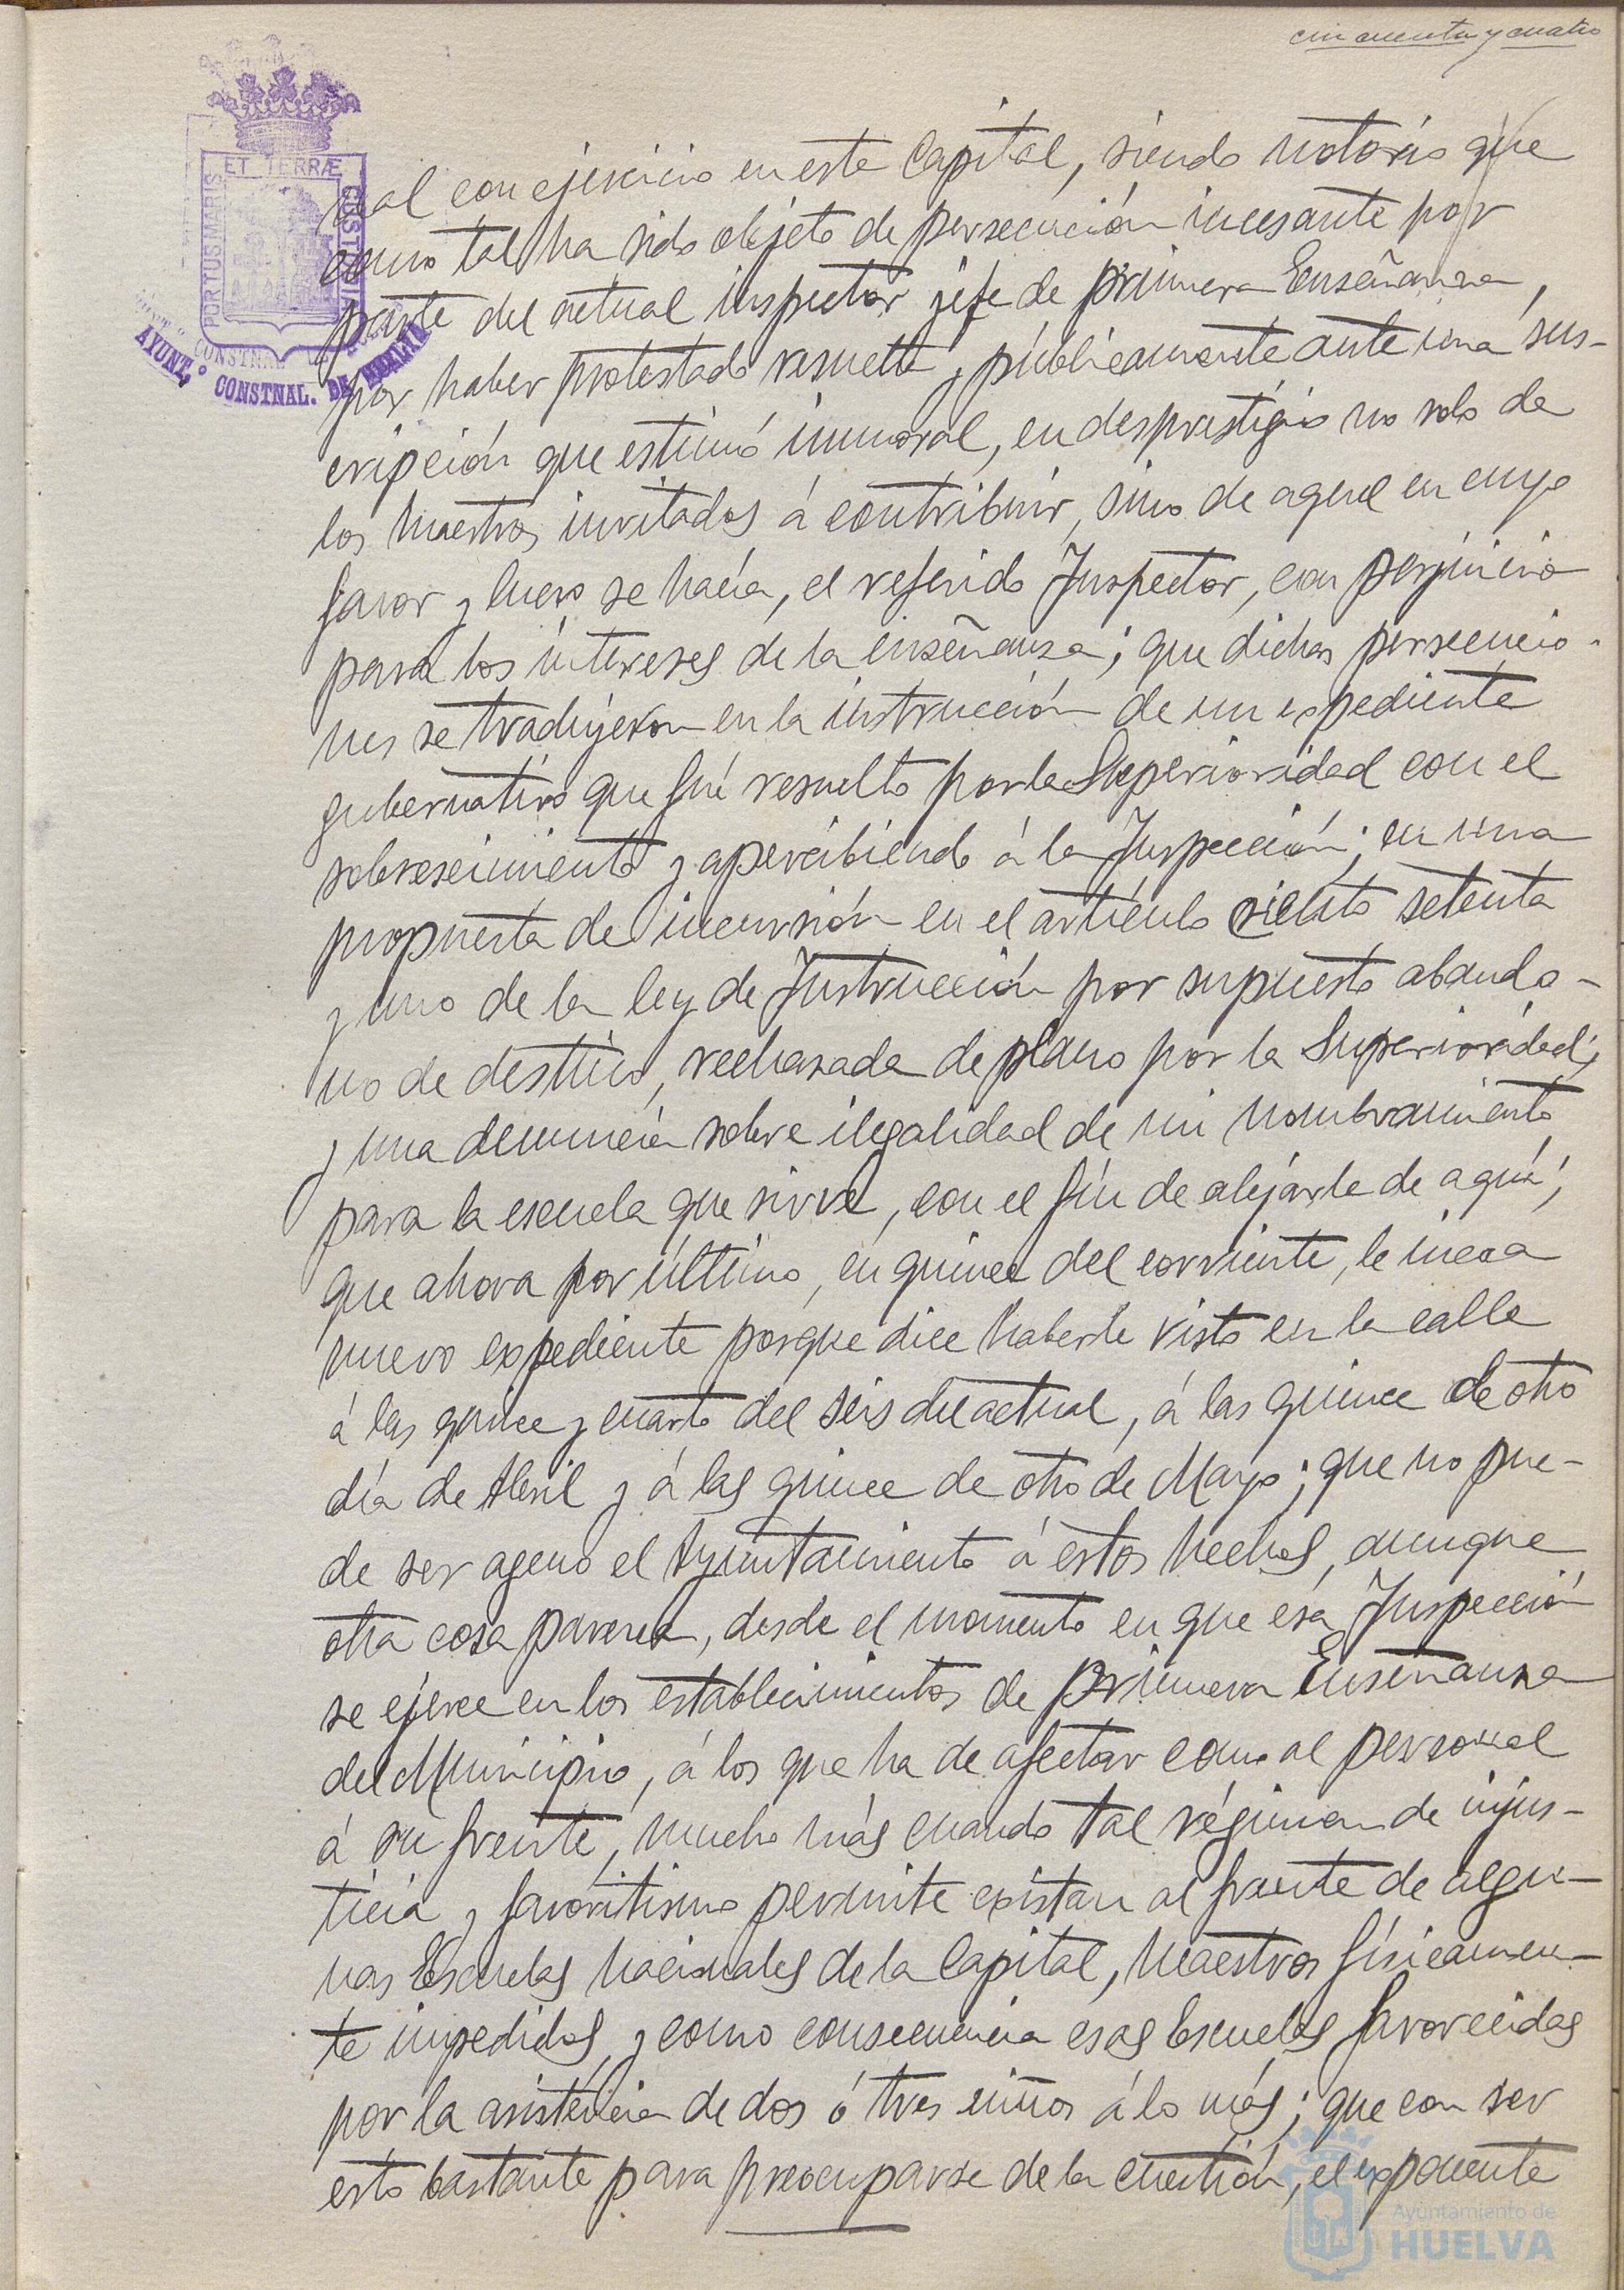 cincuenta y cuatro
PORTUS MARIS ET TERRÆ CUSTODIA
AYUNT.º CONSTNAL. DE HUELVA
nal con ejercicio en esta Capital, siendo notorio que
como tal ha sido objeto de persecución incesante por
parte del actual inspector jefe de primera Enseñanza,
por haber protestado resuelta y públicamente ante una sus-
cripción que estimó inmoral, en desprestigio no solo de
los maestros invitados á contribuir, sino de aquel en cuyo
favor y lucro se hacía, el referido Inspector, con perjuicio
para los intereses de la enseñanza; que dichas persecucio-
nes se tradujeron en la instrucción de un expediente
gubernativo que fué resuelto por la Superioridad con el
sobreseimiento y apercibiendo á la Inspección; en una
propuesta de incursión en el artículo ciento setenta
y uno de la ley de Instrucción por supuesto abando-
no de destino, rechazada de plano por la Superioridad;
y una denuncia sobre ilegalidad de mi nombramiento
para la escuela que sirve, con el fín de alejarle de aquí;
que ahora por último, en quince del corriente, le incoa
nuevo expediente porque dice haberle visto en la calle
á las quince y cuarto del seis del actual, á las quince de otro
día de Abril y á las quince de otro de Mayo; que no pue-
de ser ageno el Ayuntamiento á estos hechos, aunque
otra cosa parezca, desde el momento en que esa Inspección
se ejerce en los establecimientos de primera Enseñanza
del Municipio, á los que ha de afectar como al personal
á su frente, mucho más cuando tal régimen de injus-
ticia y favoritismo permite existan al frente de algu-
nas Escuelas nacionales de la Capital, maestros físicamen-
te impedidos, y como consecuencia esas Escuelas favorecidas
por la asistencia de dos ó tres niños á lo más; que con ser
esto bastante para preocuparse de la cuestión, el exponente
Ayuntamiento de
HUELVA